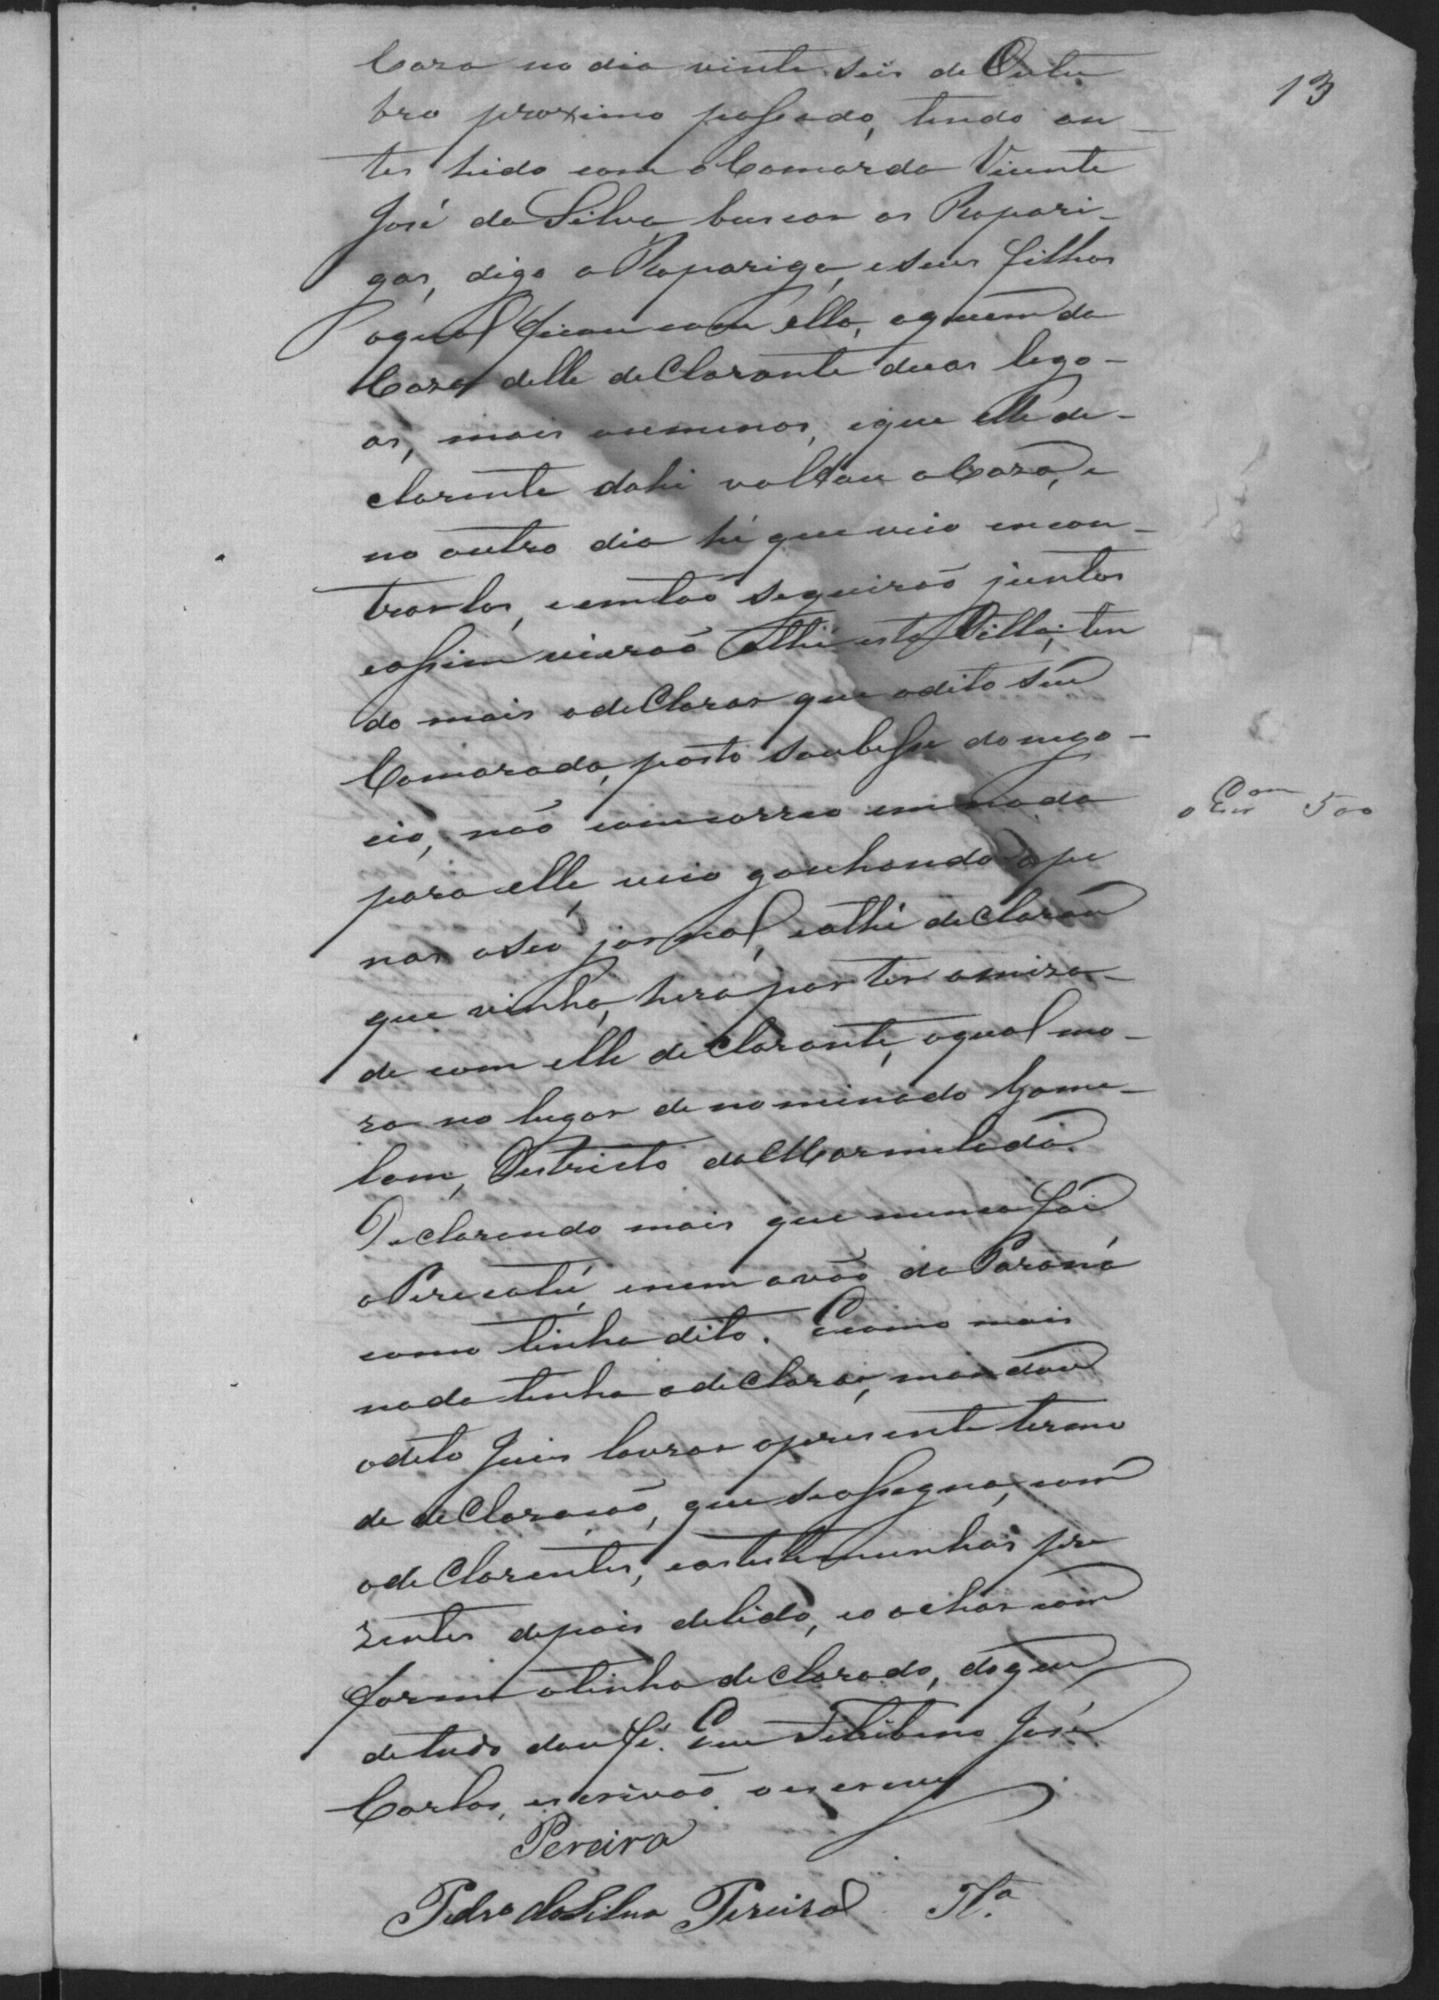 13
Caza no dia vinte seis de Outu
bro proximo passado, tendo an-
tes hido com o Camarda Vicente
José da Silva, buscar as Rapari-
gas, digo a Rapariga, e seus filhos
aqual ficou com ella, aquem da
Caza delle declarante duas lego-
as, mais oumenos, eque elle de-
clarente dahi voltou a Caza, e
no outro dia hé que veio encon-
tralos, eentão seguirão juntos
eassim vierão athé esta Villa; ten
do mais adeclarar que odito seu
Camarada, posto soubesse do nego-
cio, não comcorreo em nada
para elle, veio ganhando ape
nas oseo jornal, eathé declarou
que vinha, hera por ter amiza-
de com elle declarante, oqual mo-
ra no lugar denominado Game-
lam, Destricto da Marmelada.
Declarando mais que nunca foi
a Piracatú, enem avão do Paraná
como tinha dito. Ecomo mais
nada tinha adeclarar, mandou
odito Juis lavrar opresente termo
de declaração, que seassegna, com
odeclarente, eastestemunhas pre
zentes depois delido, eo achar com
forme otinha declarado, doque
detudo dou fé. Eu Felisbino José
Carlos, escrivão o escrevy
Pereira
Pedro da Silva Pereira
500